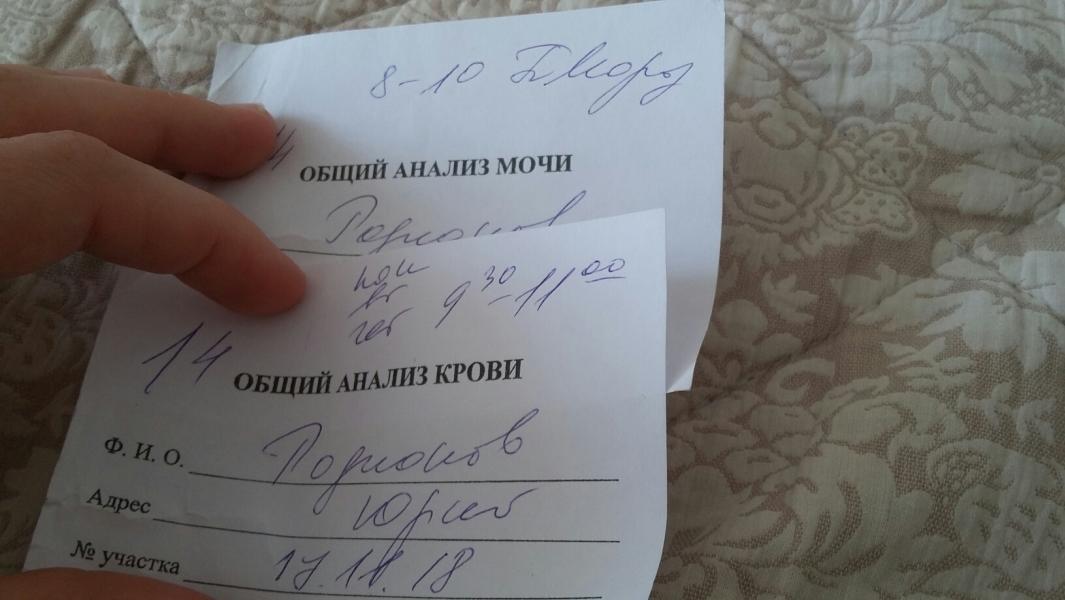 8-10
ОБЩИЙ АНАЛИЗ МОЧИ
Родионов
пон
вт
чет 9 30 - 11 00
14
ОБЩИЙ АНАЛИЗ КРОВИ
Ф. И. О. Родионов
Адрес Юрий
№ участка 17.11.18